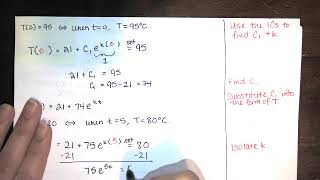 T(0)=95 ⇔ when t=0, T=95°C.
T(0) = 21 + C₁e^{k(0)} set= 95
1
21 + C₁ = 95
C₁ = 95-21 = 74
= 21 + 74e^{kt}
80 ⇔ when t=5, T=80°C.
= 21 + 75e^{k(5)} set= 80
-21 -21
75e^{5k} =
Use the ICs to
find C₁ + k.
Find C₁
Substitute C₁ into
the form of T.
Isolate k.